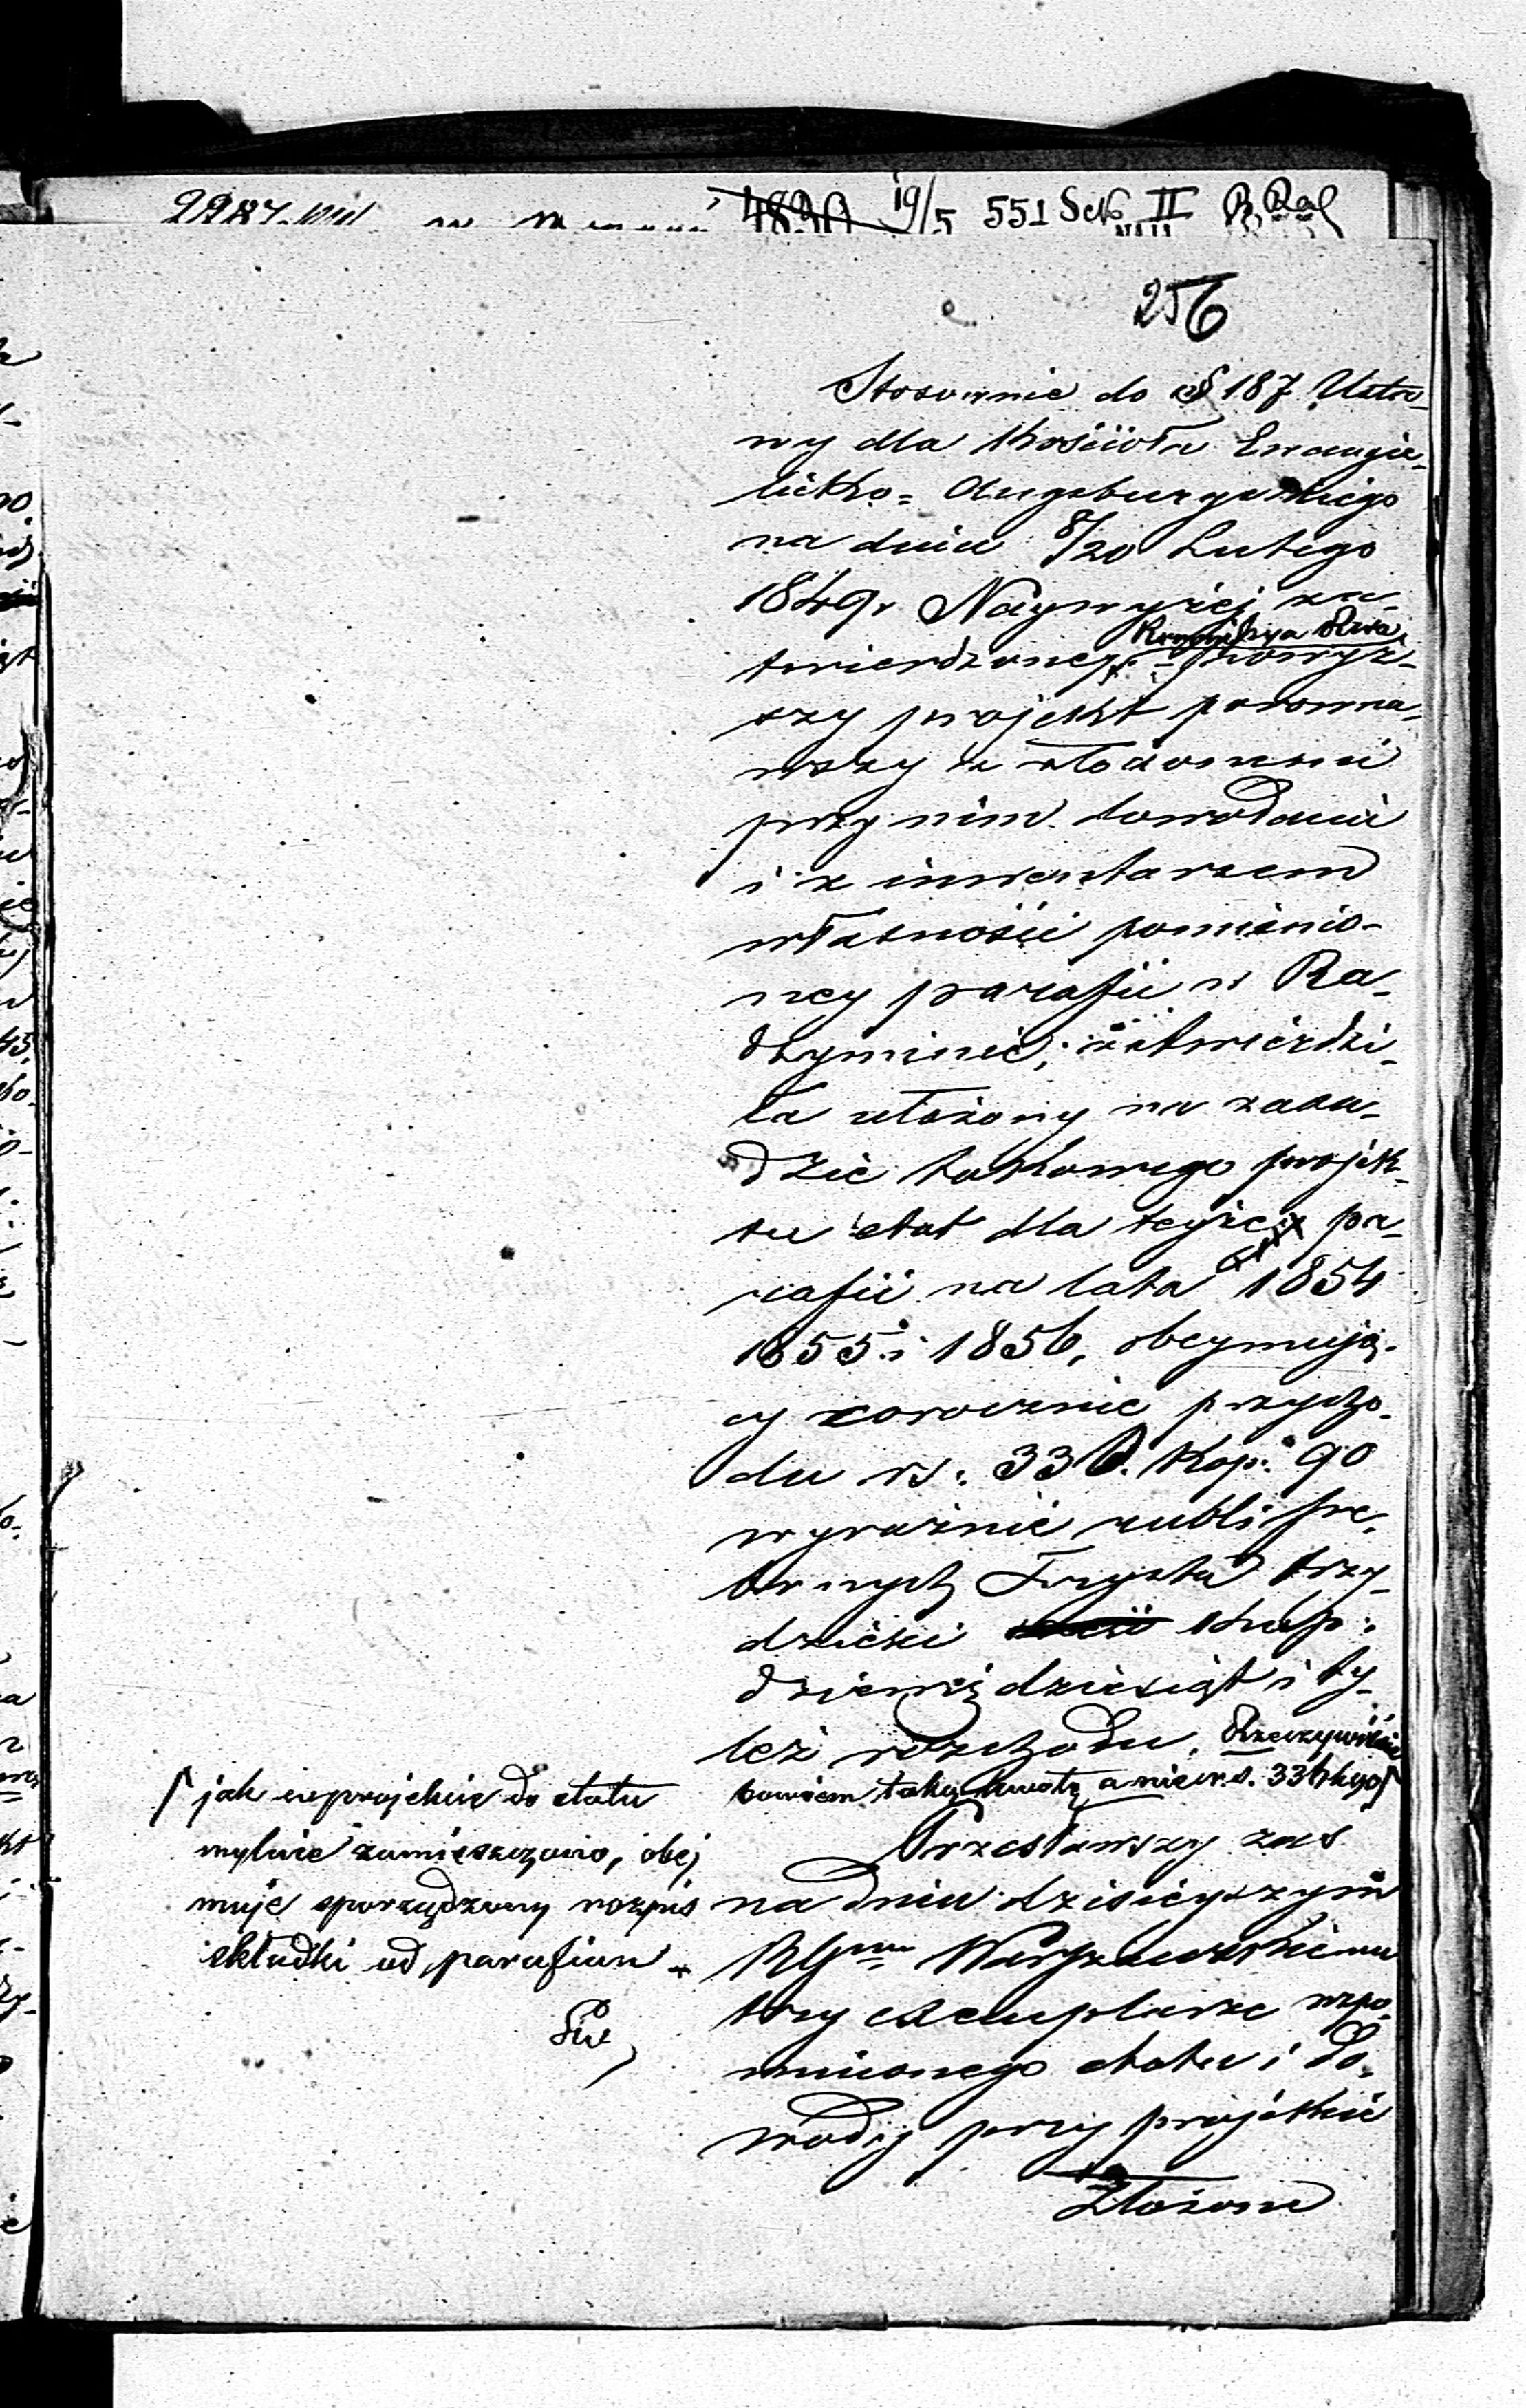 19/5 551 Sek II
256
Stosownie do § 187 Usta-
wy dla Kościoła Ewangie-
licko-Augsburgskiego
na dniu 8/20 Lutego
1849 r. Naywyżej za-
twierdzoney, Kommissya Rzą. powyż-
szy projekt porówna-
wszy z złożonemi
przy nim dowodami
i z inwentarzem
własności pomienio-
ney parafii w Ra-
dzyminie; zatwierdzi-
ła ułożony na zasa-
dzie takowego projek-
tu etat dla teyże pa-
rafii na lata 1854
1855 i 1856, obeymują-
cy corocznie przycho-
du rs: 330. Kop: 90
wyraźnie rubli sre-
brnych Trzysta trzy-
dzieści kop:
dziewięćdziesiąt i ty-
leż rozchodu. Rzeczywiście
bowiem taką kwotę a nie rs. 336 k 90
jak w projekcie do etatu
mylnie zamieszczono, obej
muje sporządzony rozpis
składki od parafian
Przesławszy zaś
na dniu dzisieyszym
RGmu Warszawskiemu
trzy exemplarze wspo-
mnionego etatu i do-
wody przy projekcie
złożone